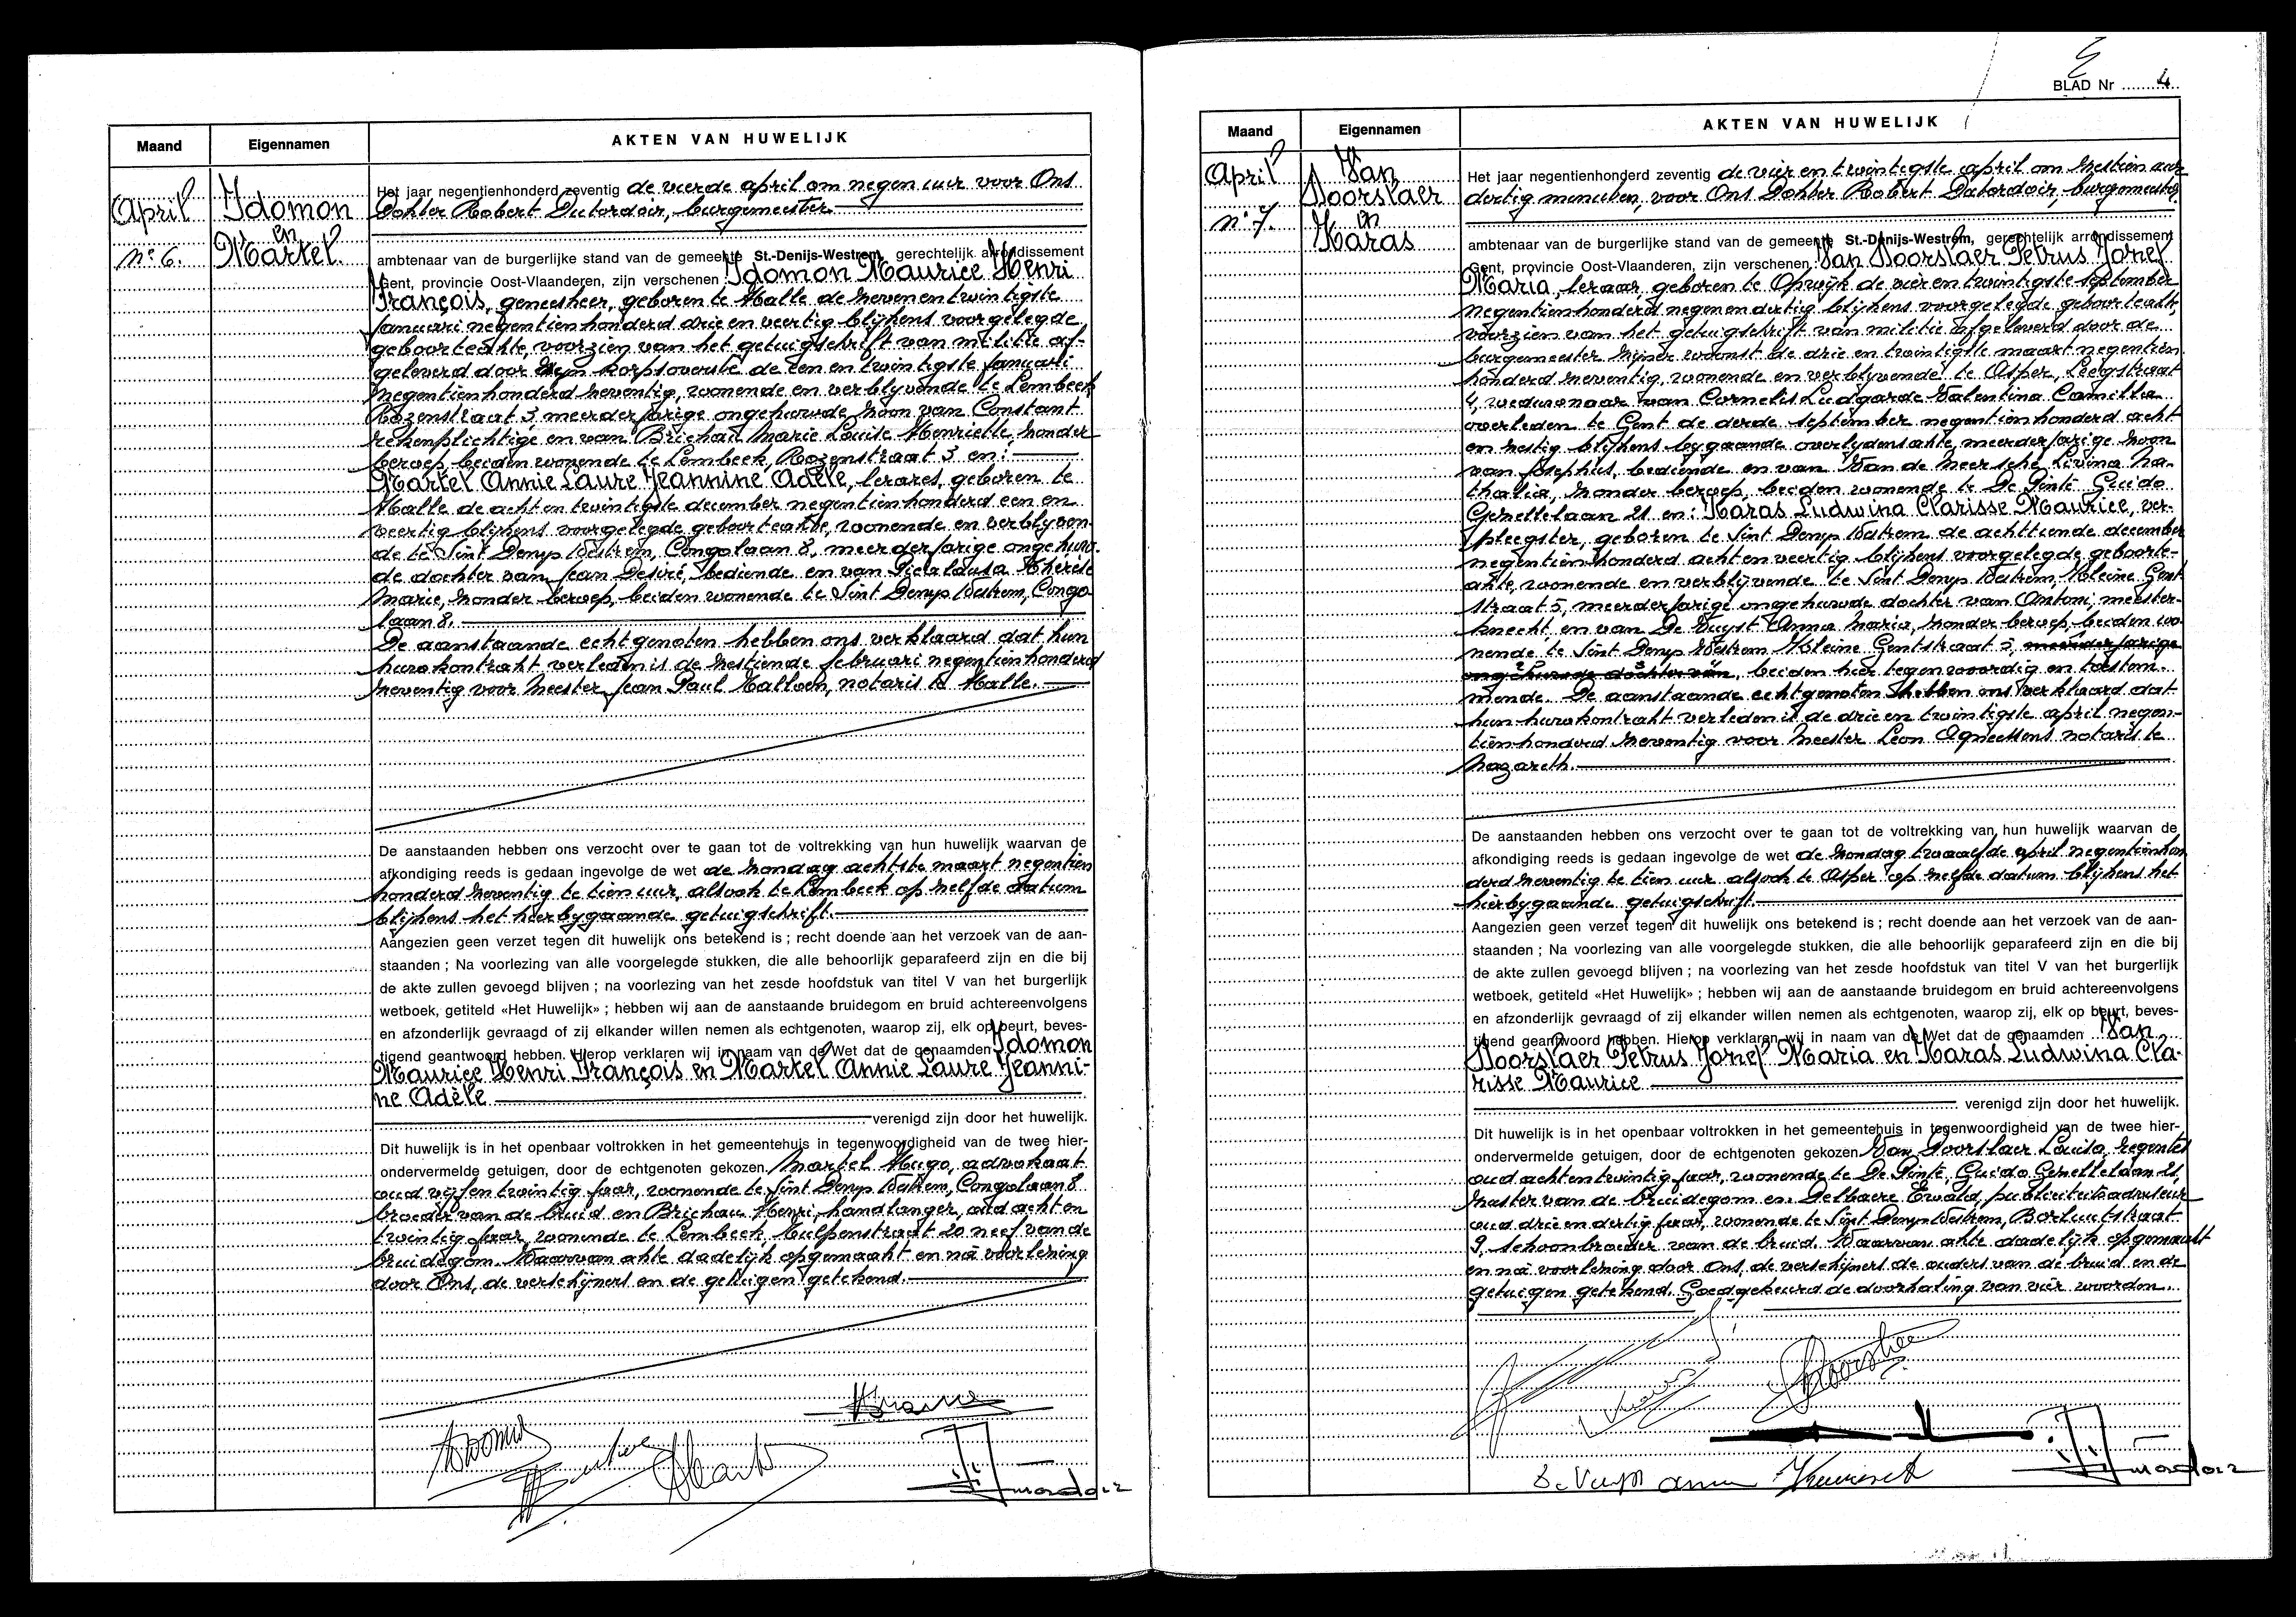 Maand
Eigennamen
AKTEN VAN HUWELIJK
April
n° 6.
Idomon
en
Martel.
Het jaar negentienhonderd zeventig de vierde april om negen uur voor Ons
Dokter Robert Dubordoir, burgemeester
ambtenaar van de burgerlijke stand van de gemeente St.-Denijs-Westrem, gerechtelijk arrondissement
Gent, provincie Oost-Vlaanderen, zijn verschenen Idomon Maurice Henri
François, geneesheer, geboren te Halle de zevenentwintigste
januari negentienhonderd drie en veertig blijkens voorgelegde
geboorteakte, voorzien van het getuigschrift van militie af-
geleverd door zijn korpsoverste de een en twintigste januari
negentienhonderd zeventig, wonende en verblijvende te Lembeek
Rozenstraat 5, meerderjarige ongehuwde zoon van Constant
rekenplichtige en van Brichau Marie Louise Henriette zonder
beroep, beiden wonende te Lembeek, Rozenstraat 5 en:
Martel Annie Laure Jeannine Adèle, lerares, geboren te
Halle de acht en twintigste december negentienhonderd een en
veertig blijkens voorgelegde geboorteakte, wonende en verblijven-
de te Sint Denijs Westrem, Congolaan 8, meerderjarige ongehuw-
de dochter van Jean Desiré, bediende en van Thérèse
Marie, zonder beroep, beiden wonende te Sint Denijs Westrem, Congo
laan 8.
De aanstaande echtgenoten hebben ons verklaard dat hun
huwkontrakt verleden is de zestiende februari negentienhonderd
zeventig voor Meester Jean Paul notaris te Halle.
De aanstaanden hebben ons verzocht over te gaan tot de voltrekking van hun huwelijk waarvan de
afkondiging reeds is gedaan ingevolge de wet de zondag achtste maart negentien
honderd zeventig te tien uur, alsook te Lembeek op zelfde datum
blijkens het hierbygaande getuigschrift.
Aangezien geen verzet tegen dit huwelijk ons betekend is ; recht doende aan het verzoek van de aan-
staanden ; Na voorlezing van alle voorgelegde stukken, die alle behoorlijk geparafeerd zijn en die bij
de akte zullen gevoegd blijven ; na voorlezing van het zesde hoofdstuk van titel V van het burgerlijk
wetboek, getiteld «Het Huwelijk» ; hebben wij aan de aanstaande bruidegom en bruid achtereenvolgens
en afzonderlijk gevraagd of zij elkander willen nemen als echtgenoten, waarop zij, elk op beurt, beves-
tigend geantwoord hebben. Hierop verklaren wij in naam van de Wet dat de genaamden Idomon
Maurice Henri François en Martel Annie Laure Jeanni-
ne Adèle
verenigd zijn door het huwelijk.
Dit huwelijk is in het openbaar voltrokken in het gemeentehuis in tegenwoordigheid van de twee hier-
ondervermelde getuigen, door de echtgenoten gekozen. Martel Hugo, advokaat
oud vijfentwintig jaar, wonende te Sint Denijs Westrem, Congolaan 8
broeder van de bruid en Brichau Henri, handlanger, oud acht en
twintig jaar, wonende te Lembeek, Tulpenstraat 20 neef van de
bruidegom. Waarvan akte dadelijk opgemaakt en na voorlezing
door Ons, de verschijners en de getuigen getekend.
BLAD Nr 4
Maand
Eigennamen
AKTEN VAN HUWELIJK
April
n° 7.
Van
Doorslaer
en
Haras
Het jaar negentienhonderd zeventig de vier en twintigste april om zestien uur
dertig minuten, voor Ons Dokter Robert Dubordoir, burgemeester,
ambtenaar van de burgerlijke stand van de gemeente St.-Denijs-Westrem, gerechtelijk arrondissement
Gent, provincie Oost-Vlaanderen, zijn verschenen : Van Doorslaer Petrus Jozef
Maria, leraar, geboren te Opwijk de vier en twintigste september
negentienhonderd negenendertig blijkens voorgelegde geboorteakte,
voorzien van het getuigschrift van militie afgeleverd door de
burgemeester zijner woonst de drie en twintigste maart negentien
honderd zeventig, wonende en verblijvende te Asper, Leegstraat
4, weduwnaar van Cornelis Ludgarde Valentina Camilla
overleden te Gent de derde september negentienhonderd acht
en zestig blijkens bygaande overlydensakte, meerderjarige zoon
van Josephus, bediende en van Van de Meersche Livina Na-
thalia, zonder beroep, beiden wonende te De Pinte Guido
Gezellelaan 21 en: Haras Ludwina Clarisse Maurice, ver-
pleegster, geboren te Sint Denijs Westrem de achttiende december
negentienhonderd acht en veertig blijkens voorgelegde geboorte-
akte, wonende en verblijvende te Sint Denijs Westrem, Kleine Gent
straat 5, meerderjarige ongehuwde dochter van Antoni, meester-
knecht en van De Vuyst Anna Maria, zonder beroep, beiden wo-
nende te Sint Denijs Westrem Kleine Gentstraat 5, meerderjarige
ongehuwde dochter van, beiden hier tegenwoordig en toestem-
mende. De aanstaande echtgenoten hebben ons verklaard dat
hun huwkontrakt verleden is de drie en twintigste april negen-
tienhonderd zeventig voor Meester Leon Agneessens notaris te
Nazareth.
De aanstaanden hebben ons verzocht over te gaan tot de voltrekking van hun huwelijk waarvan de
afkondiging reeds is gedaan ingevolge de wet de zondag twaalfde april negentienhon
derd zeventig te tien uur alsook te Asper op zelfde datum blijkens het
hierbygaande getuigschrift.
Aangezien geen verzet tegen dit huwelijk ons betekend is ; recht doende aan het verzoek van de aan-
staanden ; Na voorlezing van alle voorgelegde stukken, die alle behoorlijk geparafeerd zijn en die bij
de akte zullen gevoegd blijven ; na voorlezing van het zesde hoofdstuk van titel V van het burgerlijk
wetboek, getiteld «Het Huwelijk» ; hebben wij aan de aanstaande bruidegom en bruid achtereenvolgens
en afzonderlijk gevraagd of zij elkander willen nemen als echtgenoten, waarop zij, elk op beurt, beves-
tigend geantwoord hebben. Hierop verklaren wij in naam van de Wet dat de genaamden Van
Doorslaer Petrus Jozef Maria en Haras Ludwina Cla-
risse Maurice
verenigd zijn door het huwelijk.
Dit huwelijk is in het openbaar voltrokken in het gemeentehuis in tegenwoordigheid van de twee hier-
ondervermelde getuigen, door de echtgenoten gekozen Van Doorslaer Louisa, regentes
oud achtentwintig jaar, wonende te De Pinte, Guido Gezellelaan 21,
zuster van de bruidegom en Delbaere Ewald, publiciteitsadviseur
oud drie en dertig jaar, wonende te Sint Denijs Westrem, Borluutstraat
9, schoonbroeder van de bruid. Waarvan akte dadelijk opgemaakt
en na voorlezing door Ons, de verschijners de ouders van de bruid en de
getuigen getekend. Goedgekeurd de doorhaling van vier woorden.
De Vuyst Anna